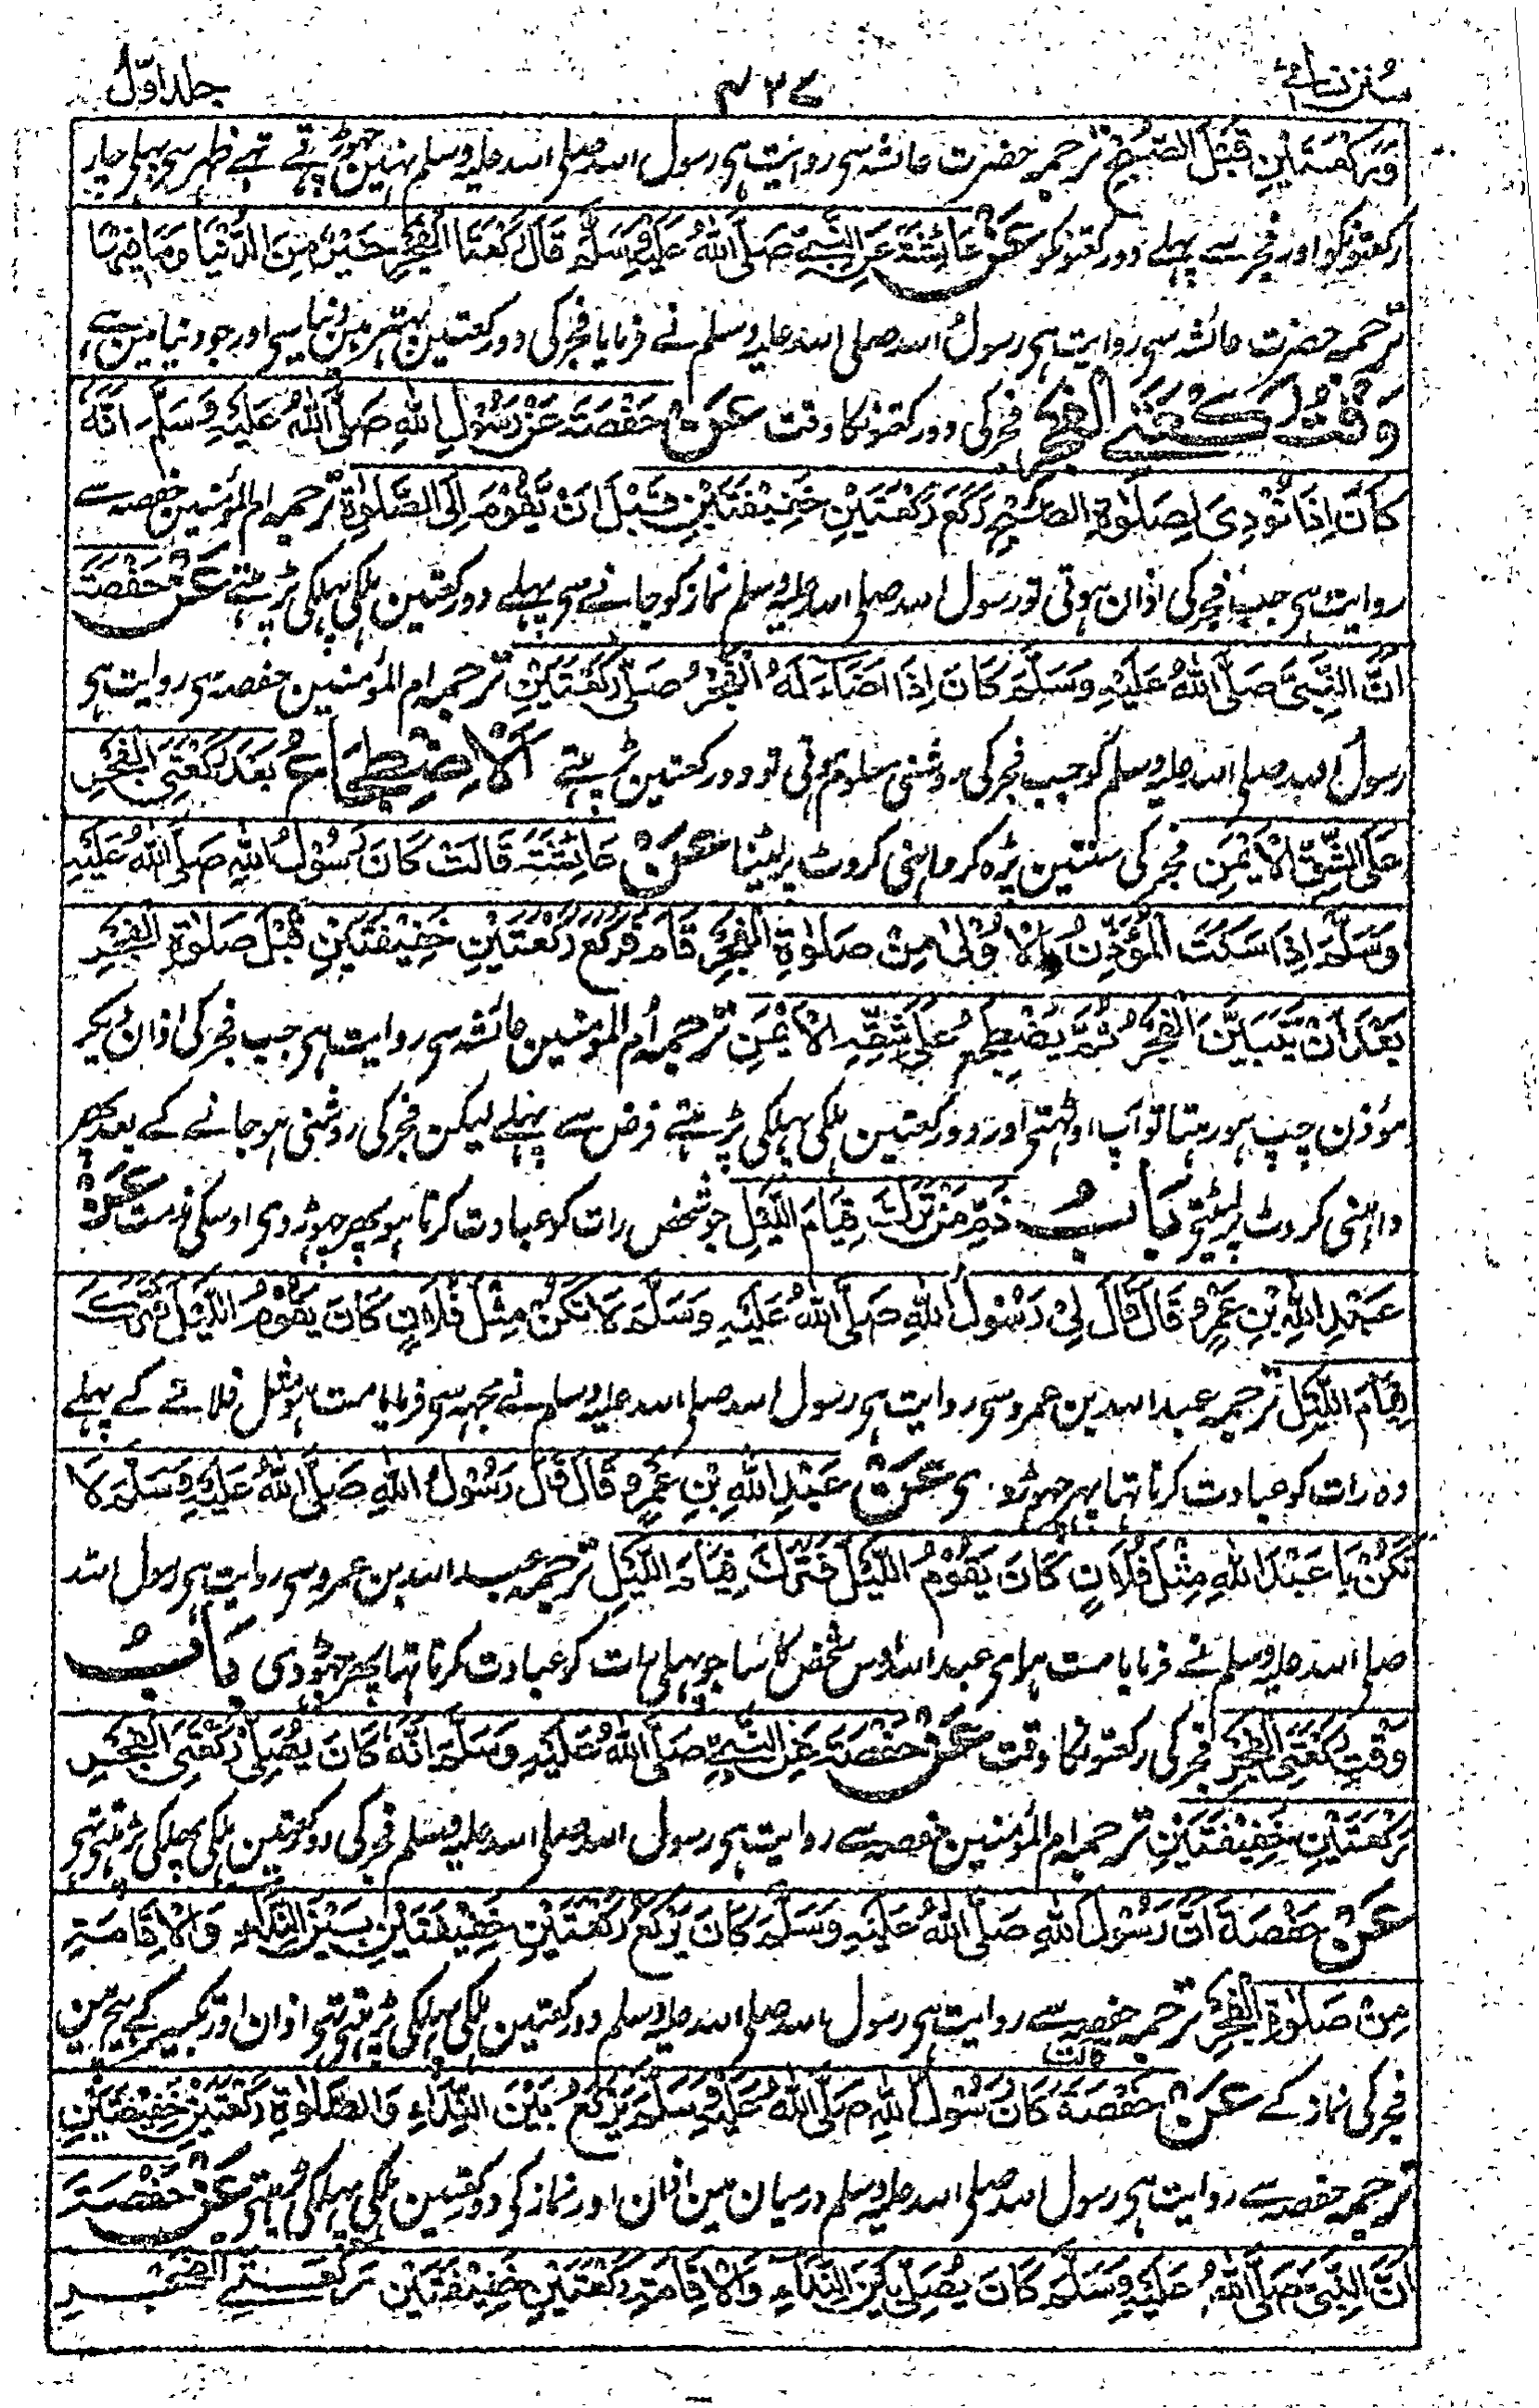 سنن نسائی ۴۳۷ جلد اوّل
وَرَكْعَتَيْنِ قَبْلَ الصُّبْحِ ترجمہ حضرت عائشہ سے روایت ہی رسول اللہ صلی اللہ علیہ وسلم نہین چھوڑتے تہے ظہر سی پہلی چار
رکعتونکو اور فجر سے پہلے دو رکعتونکو عَنْ عَائِشَةَ عَنِ النَّبِيِّ صَلَّى اللهُ عَلَيْهِ وَسَلَّمَ قَالَ رَكْعَتَا الْفَجْرِ خَيْرٌ مِنَ الدُّنْيَا وَمَا فِيْهَا
ترجمہ حضرت عائشہ سی روایت ہی رسول اللہ صلی اللہ علیہ وسلم نے فرمایا فجر کی دو رکعتین بہتر ہین دنیا سی اور جو دنیا مین ہے
وَقْتُ رَكْعَتَيِ الْفَجْرِ فجر کی دو رکعتونکا وقت عَنْ حَفْصَةَ عَنْ رَسُوْلِ اللهِ صَلَّى اللهُ عَلَيْهِ وَسَلَّمَ اَنَّهُ
كَانَ اِذَا نُوْدِيَ لِصَلٰوةِ الصُّبْحِ رَكَعَ رَكْعَتَيْنِ خَفِيْفَتَيْنِ قَبْلَ اَنْ يَّقُوْمَ اِلَى الصَّلٰوةِ ترجمہ ام المؤمنین حفصہ سے
روایت ہی جب فجر کی اذان ہوتی تو رسول اللہ صلی اللہ علیہ وسلم نماز کو جانے سی پہلے دو رکعتین ہلکی پہلکی پڑہتے عَنْ حَفْصَةَ
اَنَّ النَّبِيَّ صَلَّى اللهُ عَلَيْهِ وَسَلَّمَ كَانَ اِذَا اَضَاءَ لَهُ الْفَجْرُ صَلَّى رَكْعَتَيْنِ ترجمہ ام المؤمنین حفصہ سی روایت ہی
رسول اللہ صلی اللہ علیہ وسلم کو جب فجر کی روشنی معلوم ہوتی تو دو رکعتین پڑہتے اَلْاِضْطِجَاعُ بَعْدَ رَكْعَتَيِ الْفَجْرِ
عَلَى الشِّقِّ الْاَيْمَنِ فجر کی سنتین پڑہ کر داہنی کروٹ پر لیٹنا عَنْ عَائِشَةَ قَالَتْ كَانَ رَسُوْلُ اللهِ صَلَّى اللهُ عَلَيْهِ
وَسَلَّمَ اِذَا سَكَتَ الْمُؤَذِّنُ بِالْاُوْلٰى مِنْ صَلٰوةِ الْفَجْرِ قَامَ فَرَكَعَ رَكْعَتَيْنِ خَفِيْفَتَيْنِ قَبْلَ صَلٰوةِ الْفَجْرِ
بَعْدَ اَنْ يَّتَبَيَّنَ الْفَجْرُ ثُمَّ يَضْطَجِعُ عَلٰى شِقِّهِ الْاَيْمَنِ ترجمہ ام المؤمنین عائشہ سی روایت ہی جب فجر کی اذان دیکر
مؤذن چپ ہو رہتا تو آپ اوٹہتے اور دو رکعتین ہلکی پہلکی پڑہتے فرض سے پہلے لیکن فجر کی روشنی ہو جانے کے بعد پھر
داہنی کروٹ پر لیٹتے بَابُ ذَمِّ مَنْ تَرَكَ قِيَامَ اللَّيْلِ جو شخص رات کو عبادت کرتا ہو پھر چھوڑ دی اوسکی مذمت عَنْ
عَبْدِ اللهِ بْنِ عَمْرٍو قَالَ قَالَ لِيْ رَسُوْلُ اللهِ صَلَّى اللهُ عَلَيْهِ وَسَلَّمَ لَا تَكُنْ مِثْلَ فُلَانٍ كَانَ يَقُوْمُ اللَّيْلَ فَتَرَكَ
قِيَامَ اللَّيْلِ ترجمہ عبد اللہ بن عمرو سی روایت ہی رسول اللہ صلی اللہ علیہ وسلم نے مجہہ سی فرمایا مت ہو مثل فلانے کے پہلے
وہ رات کو عبادت کرتا تہا پہر چھوڑ دی عَنْ عَبْدِ اللهِ بْنِ عَمْرٍو قَالَ قَالَ رَسُوْلُ اللهِ صَلَّى اللهُ عَلَيْهِ وَسَلَّمَ لَا
تَكُنْ يَا عَبْدَ اللهِ مِثْلَ فُلَانٍ كَانَ يَقُوْمُ اللَّيْلَ فَتَرَكَ قِيَامَ اللَّيْلِ ترجمہ عبد اللہ بن عمرو سی روایت ہی رسول اللہ
صلی اللہ علیہ وسلم نے فرمایا مت ہو ای عبد اللہ اوس شخص کا سا جو پہلی رات کو عبادت کرتا تہا پھر چھوڑ دی بَابُ
وَقْتِ رَكْعَتَيِ الْفَجْرِ فجر کی رکعتونکا وقت عَنْ حَفْصَةَ عَنِ النَّبِيِّ صَلَّى اللهُ عَلَيْهِ وَسَلَّمَ اَنَّهُ كَانَ يُصَلِّيْ رَكْعَتَيِ الْفَجْرِ
رَكْعَتَيْنِ خَفِيْفَتَيْنِ ترجمہ ام المؤمنین حفصہ سے روایت ہی رسول اللہ صلی اللہ علیہ وسلم فجر کی دو رکعتین ہلکی پھلکی پڑہتے تہے
عَنْ حَفْصَةَ اَنَّ رَسُوْلَ اللهِ صَلَّى اللهُ عَلَيْهِ وَسَلَّمَ كَانَ يَرْكَعُ رَكْعَتَيْنِ خَفِيْفَتَيْنِ بَيْنَ النِّدَاءِ وَالْاِقَامَةِ
مِنْ صَلٰوةِ الْفَجْرِ ترجمہ حفصہ سے روایت ہی رسول اللہ صلی اللہ علیہ وسلم دو رکعتین ہلکی پہلکی پڑہتے تہے اذان اور تکبیر کے بیچ مین
فجر کی نماز کے عَنْ حَفْصَةَ قالت كَانَ رَسُوْلُ اللهِ صَلَّى اللهُ عَلَيْهِ وَسَلَّمَ يَرْكَعُ بَيْنَ النِّدَاءِ وَالصَّلٰوةِ رَكْعَتَيْنِ خَفِيْفَتَيْنِ
ترجمہ حفصہ سے روایت ہی رسول اللہ صلی اللہ علیہ وسلم درمیان مین اذان اور نماز کی دو رکعتین ہلکی پہلکی پڑہتے عَنْ حَفْصَةَ
اَنَّ النَّبِيَّ صَلَّى اللهُ عَلَيْهِ وَسَلَّمَ كَانَ يُصَلِّيْ بَيْنَ النِّدَاءِ وَالْاِقَامَةِ رَكْعَتَيْنِ خَفِيْفَتَيْنِ رَكْعَتَيِ الْفَجْرِ